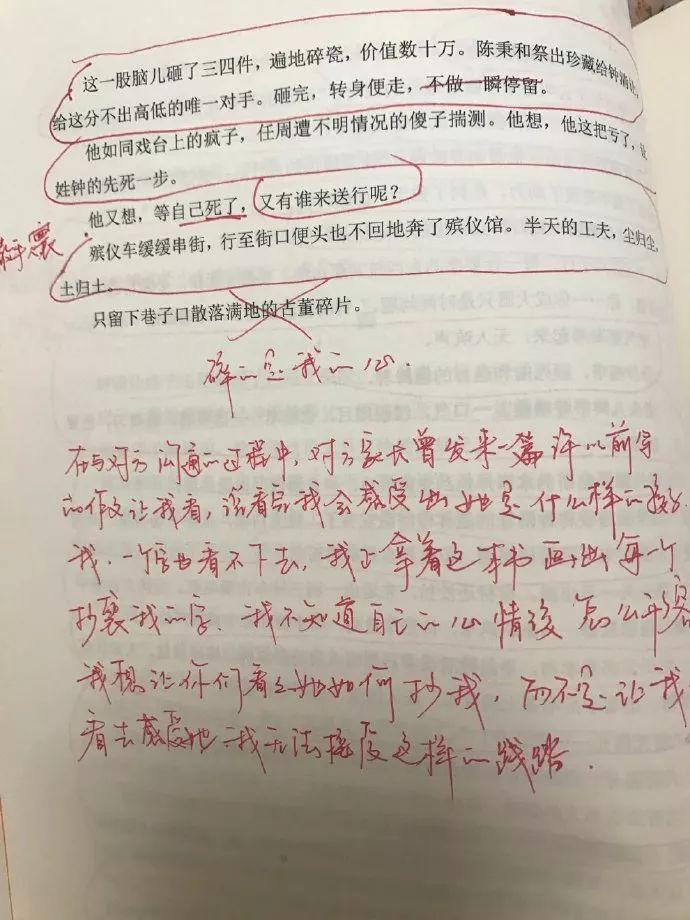 这一股脑儿砸了三四件，遍地碎瓷，价值数十万。陈秉和祭出珍藏给钟
给这分不出高低的唯一对手。砸完，转身便走，不做一瞬停留。
他如同戏台上的疯子，任周遭不明情况的傻子揣测。他想，他这把亏了，让
姓钟的先死一步。
他又想，等自己死了，又有谁来送行呢？
殡仪车缓缓串街，行至街口便头也不回地奔了殡仪馆。半天的工夫，尘归尘，
土归土。
只留下巷子口散落满地的古董碎片。
碎的是我的心。
在与对方沟通的过程中，对方家长曾发来一篇许以前写
的作文让我看，说看完我会感受出她是什么样的孩子
我，一个字也看不下去，我正拿着这本书画出每一个
抄袭我的字。我不知道自己的心情该怎么平复
我想让你们看看她如何抄我，而不是让我
看去感受她，我无法接受这样的践踏.